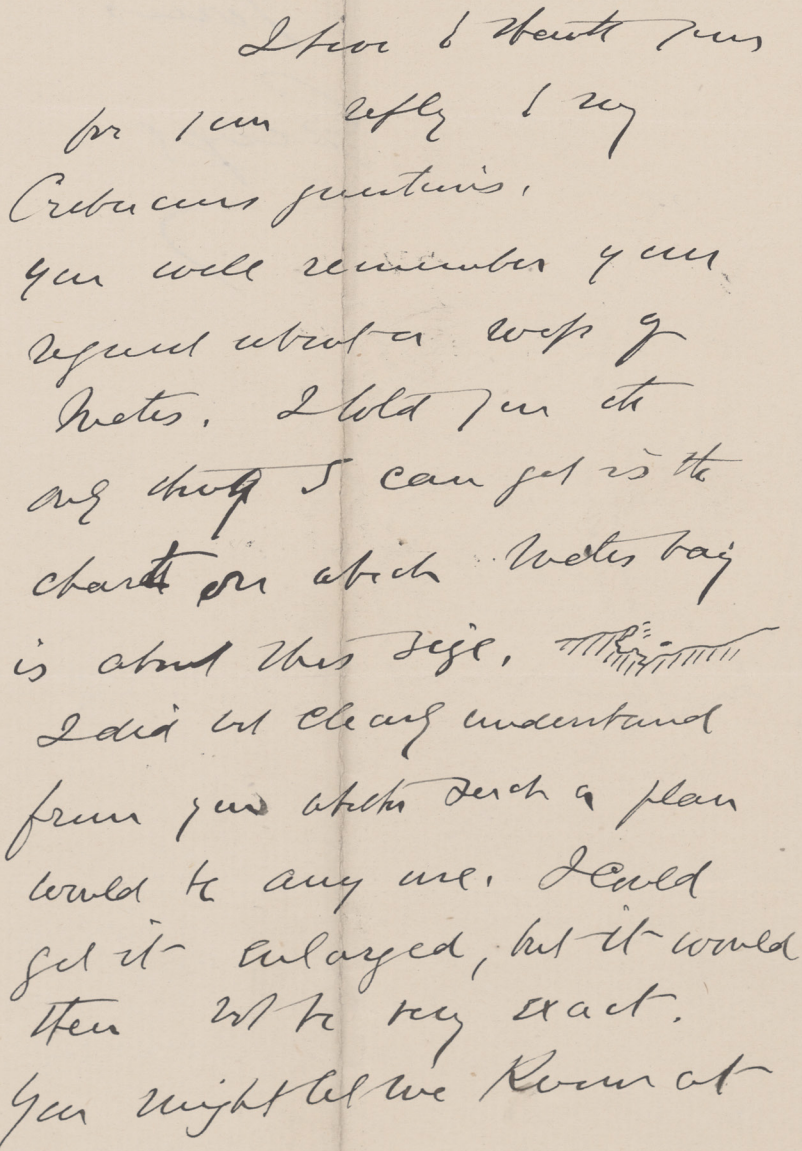 I have to thank you
for your reply to my
questions.
You will remember your
request about a map of
Metis. I told you the
only thing I can get is the
chart on which Metis bay
is about this size.
I did not clearly understand
from you whether such a plan
would be any use. I could
get it enlarged, but it would
then not be very exact.
You might let me know at